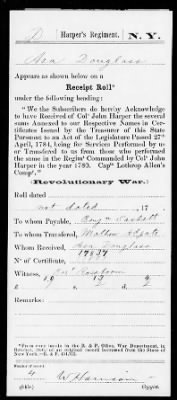 D | Harper's Regiment, | N. Y.
Asa Douglass
Appears as shown below on a
Receipt Roll*
under the following heading:
"We the Subscribers do hereby Acknowledge
to have Received of Colº John Harper the several
sums Annexed to our Respective Names in Cer-
tificates Issued by the Treasurer of this State
Pursuant to an Act of the Legislature Passed 27th
April, 1784, being for Services Performed by us
or Transfered to us from those who performed
the same in the Regimᵗ Commanded by Colº John
Harper in the year 1780. Capᵗ Lothrop Allen's
Compʸ."
(Revolutionary War.)
Roll dated
not dated, 17 .
To whom Payable,
To whom Transfered, Mathew
Whom Received, Asa Douglass
Nº of Certificate, 17837
Witness,
£ 19 s. 12 d.
Remarks:
*From rolls made in the R. & P. Office, War Department, in
York.—R. & P.
4
(642c) Copyist.